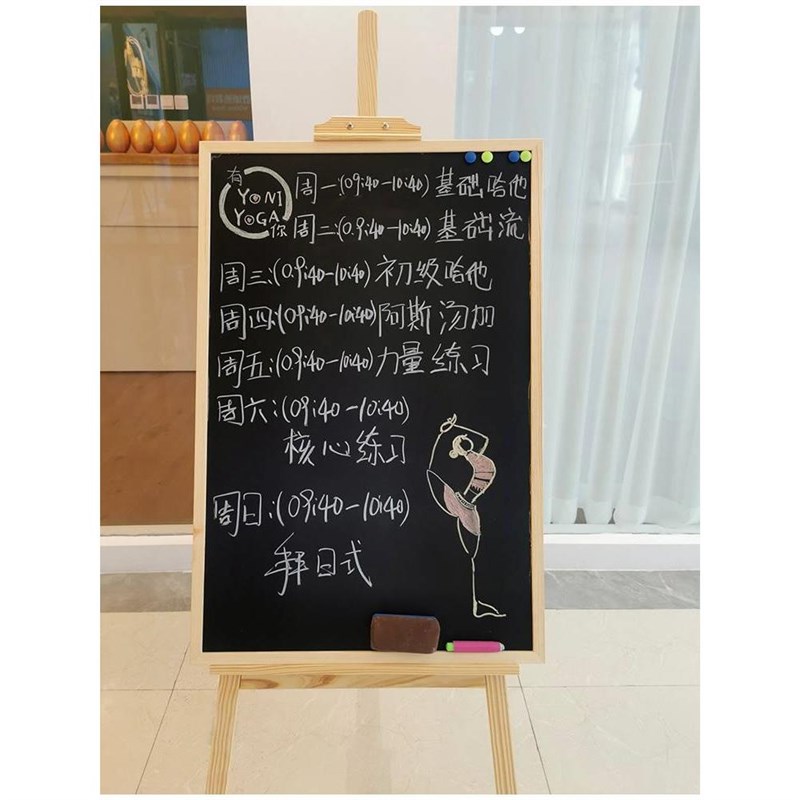 有
YONI
YOGA
你
周一:(09:40-10:40) 基础哈他
周二:(09:40-10:40) 基础流
周三:(09:40-10:40) 初级哈他
周四:(09:40-10:40) 阿斯汤加
周五:(09:40-10:40) 力量练习
周六:(09:40-10:40)
核心练习
周日:(09:40-10:40)
拜日式